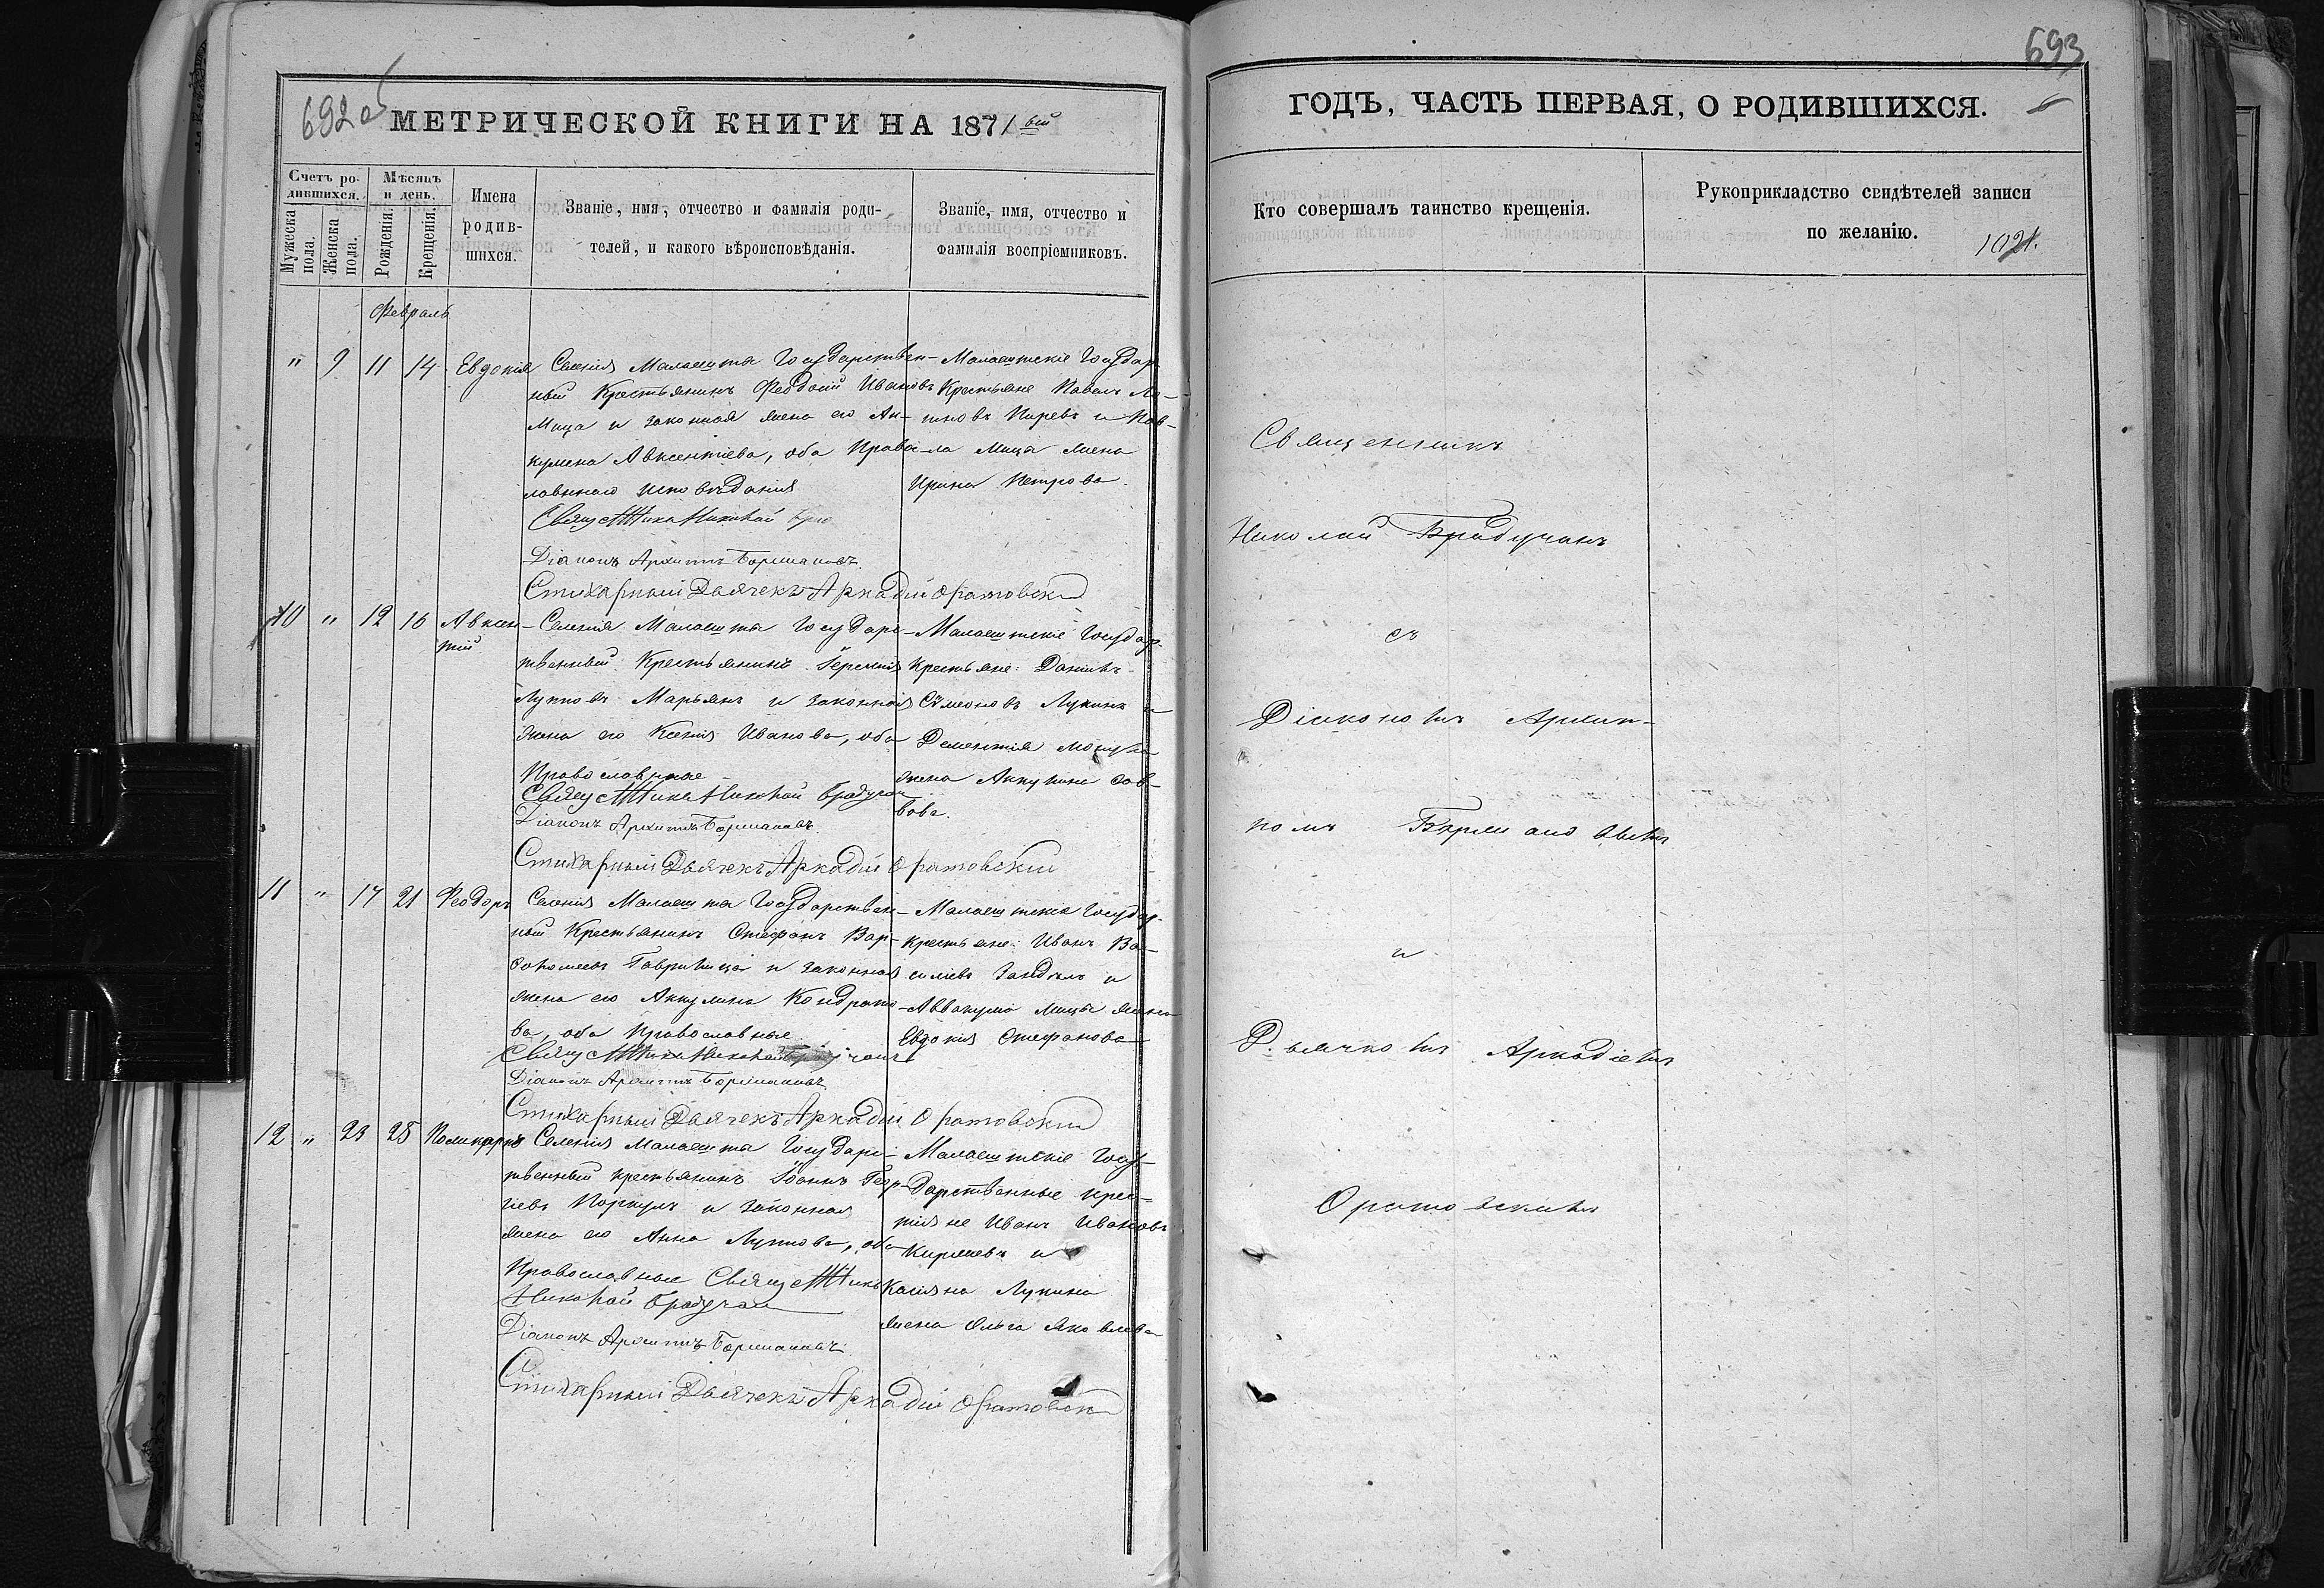 692об
МЕТРИЧЕСКОЙ КНИГИ НА 1871 вый
Счетъ ро-
дившихся.
Мѣсяцъ
и день.
Мужеска
пола.
Женска
пола.
Рожденія.
Крещенія.
Имена
родив-
шихся.
Званіе, имя, отчество и фамилія роди-
телей, и какого вѣроисповѣданія.
Званіе, имя, отчество и
фамилія воспріемниковъ.
Февраль
" 9 11 14 Евдокія
Селенія Малаешта Государствен-
ный Крестьянинъ Феодосій Ивановъ
Мица и законная жена его Ак-
кулина Авксентіева, оба Право-
лавнаго исповѣданія
Священникъ Николай
Діаконъ Архиппъ Боршаковъ
Стихарный Дьячекъ Аркадій Оратовскій
Малаештскіе Государ
Крестьяне Павелъ
Киревъ и
ла Мица жена
Ирина Петрова.
10 " 12 16 Авксен-
тій
Селенія Малаешта Государс-
твенный Крестьянинъ Іеремія
Луповъ Марьянъ и законная
жена его Ксенія Иванова, оба
Православные
Священникъ Николай Брадучанъ
Діаконъ Архиппъ Боршаковъ.
Стихарный Дьячекъ Аркадій Оратовскій
Малаештскіе Государ-
Крестьяне: Даніилъ
Сѵмеоновъ Лукинъ и
Дементія
жена Аккулина Сав-
вова.
11 " 17 21 Феодоръ
Селенія Малаешта Государствен-
ный Крестьянинъ Стефанъ Вар-
Гаврилица и законная
жена его Аккулина Кондрато-
ва, оба православные
Священникъ Николай
Діаконъ Архиппъ Боршаковъ
Стихарный Дьячекъ Аркадій Оратовскій
Малаештскіе Государ-
крестьяне: Иванъ Ва-
силіевъ и
Аввакума Мицы жена
Евдокія Стефанова
12 " 23 25 Поликарпъ
Селенія Малаешта Государс-
твенный крестьянинъ Іоаннъ Геор-
гіевъ и законная
жена его Анна Лупова, оба
Православные Священникъ
Николай Брадучанъ
Діаконъ Архиппъ Боршаковъ
Стихарный Дьячекъ Аркадій Оратовскій
Малаештскіе Госу-
дарственные крес-
тіяне Иванъ Ивановъ
и
Касіяна Лукина
жена Ольга Яковлева
693
ГОДЪ, ЧАСТЬ ПЕРВАЯ, О РОДИВШИХСЯ.
Кто совершалъ таинство крещенія.
Рукоприкладство свидѣтелей записи
по желанію.
Священникъ
Николай Брадучанъ
съ
Діакономъ Архип-
помъ
и
Дьячкомъ Аркадіемъ
Оратовскимъ